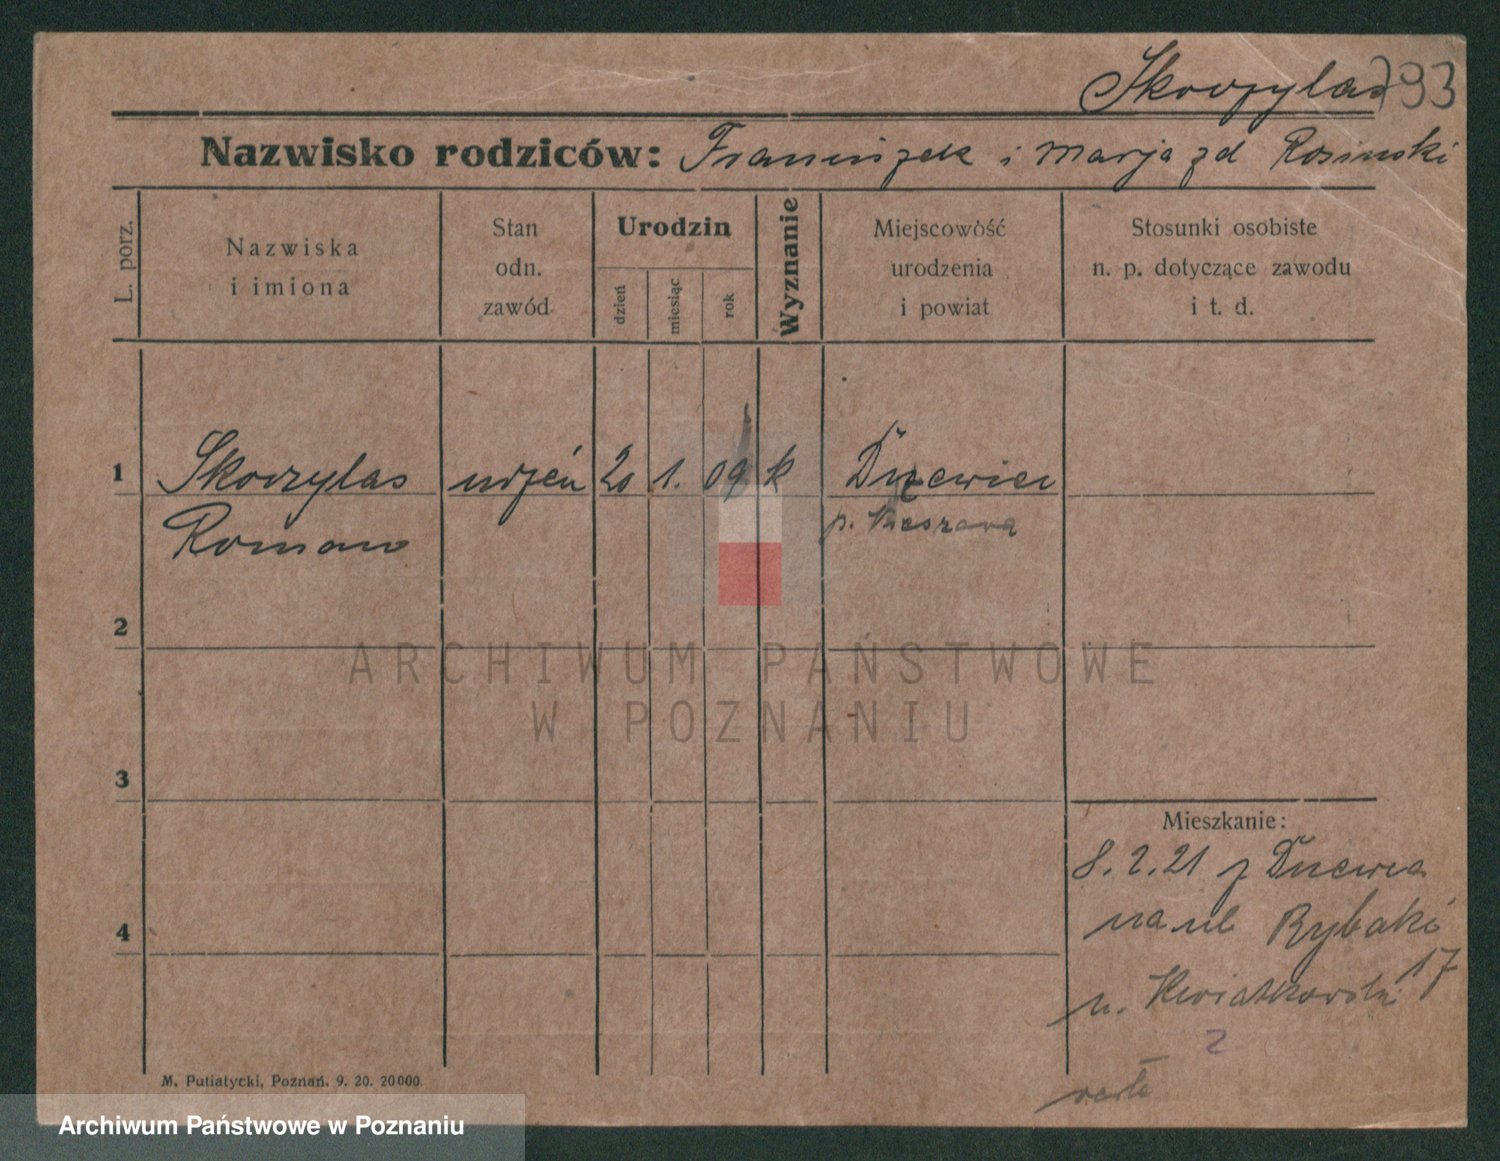 Skorzylas 793
Nazwisko rodziców: Franciszek i Marja zd Rosinski
L. porz.
Nazwiska
i imiona
Stan
odn.
zawód
Urodzin
dzień
miesiąc
rok
Wyznanie
Miejscowość
urodzenia
i powiat
Stosunki osobiste
n. p. dotyczące zawodu
i t. d.
1 Skorzylas uczeń 20 1. 09 k
Roman p.
2
3
4
Mieszkanie:
8.2.21 z
na ul Rybaki
17
u. Kwiatkowski
2
M. Putiatycki, Poznań. 9. 20. 20000.
ARCHIWUM PAŃSTWOWE
W POZNANIU
Archiwum Państwowe w Poznaniu